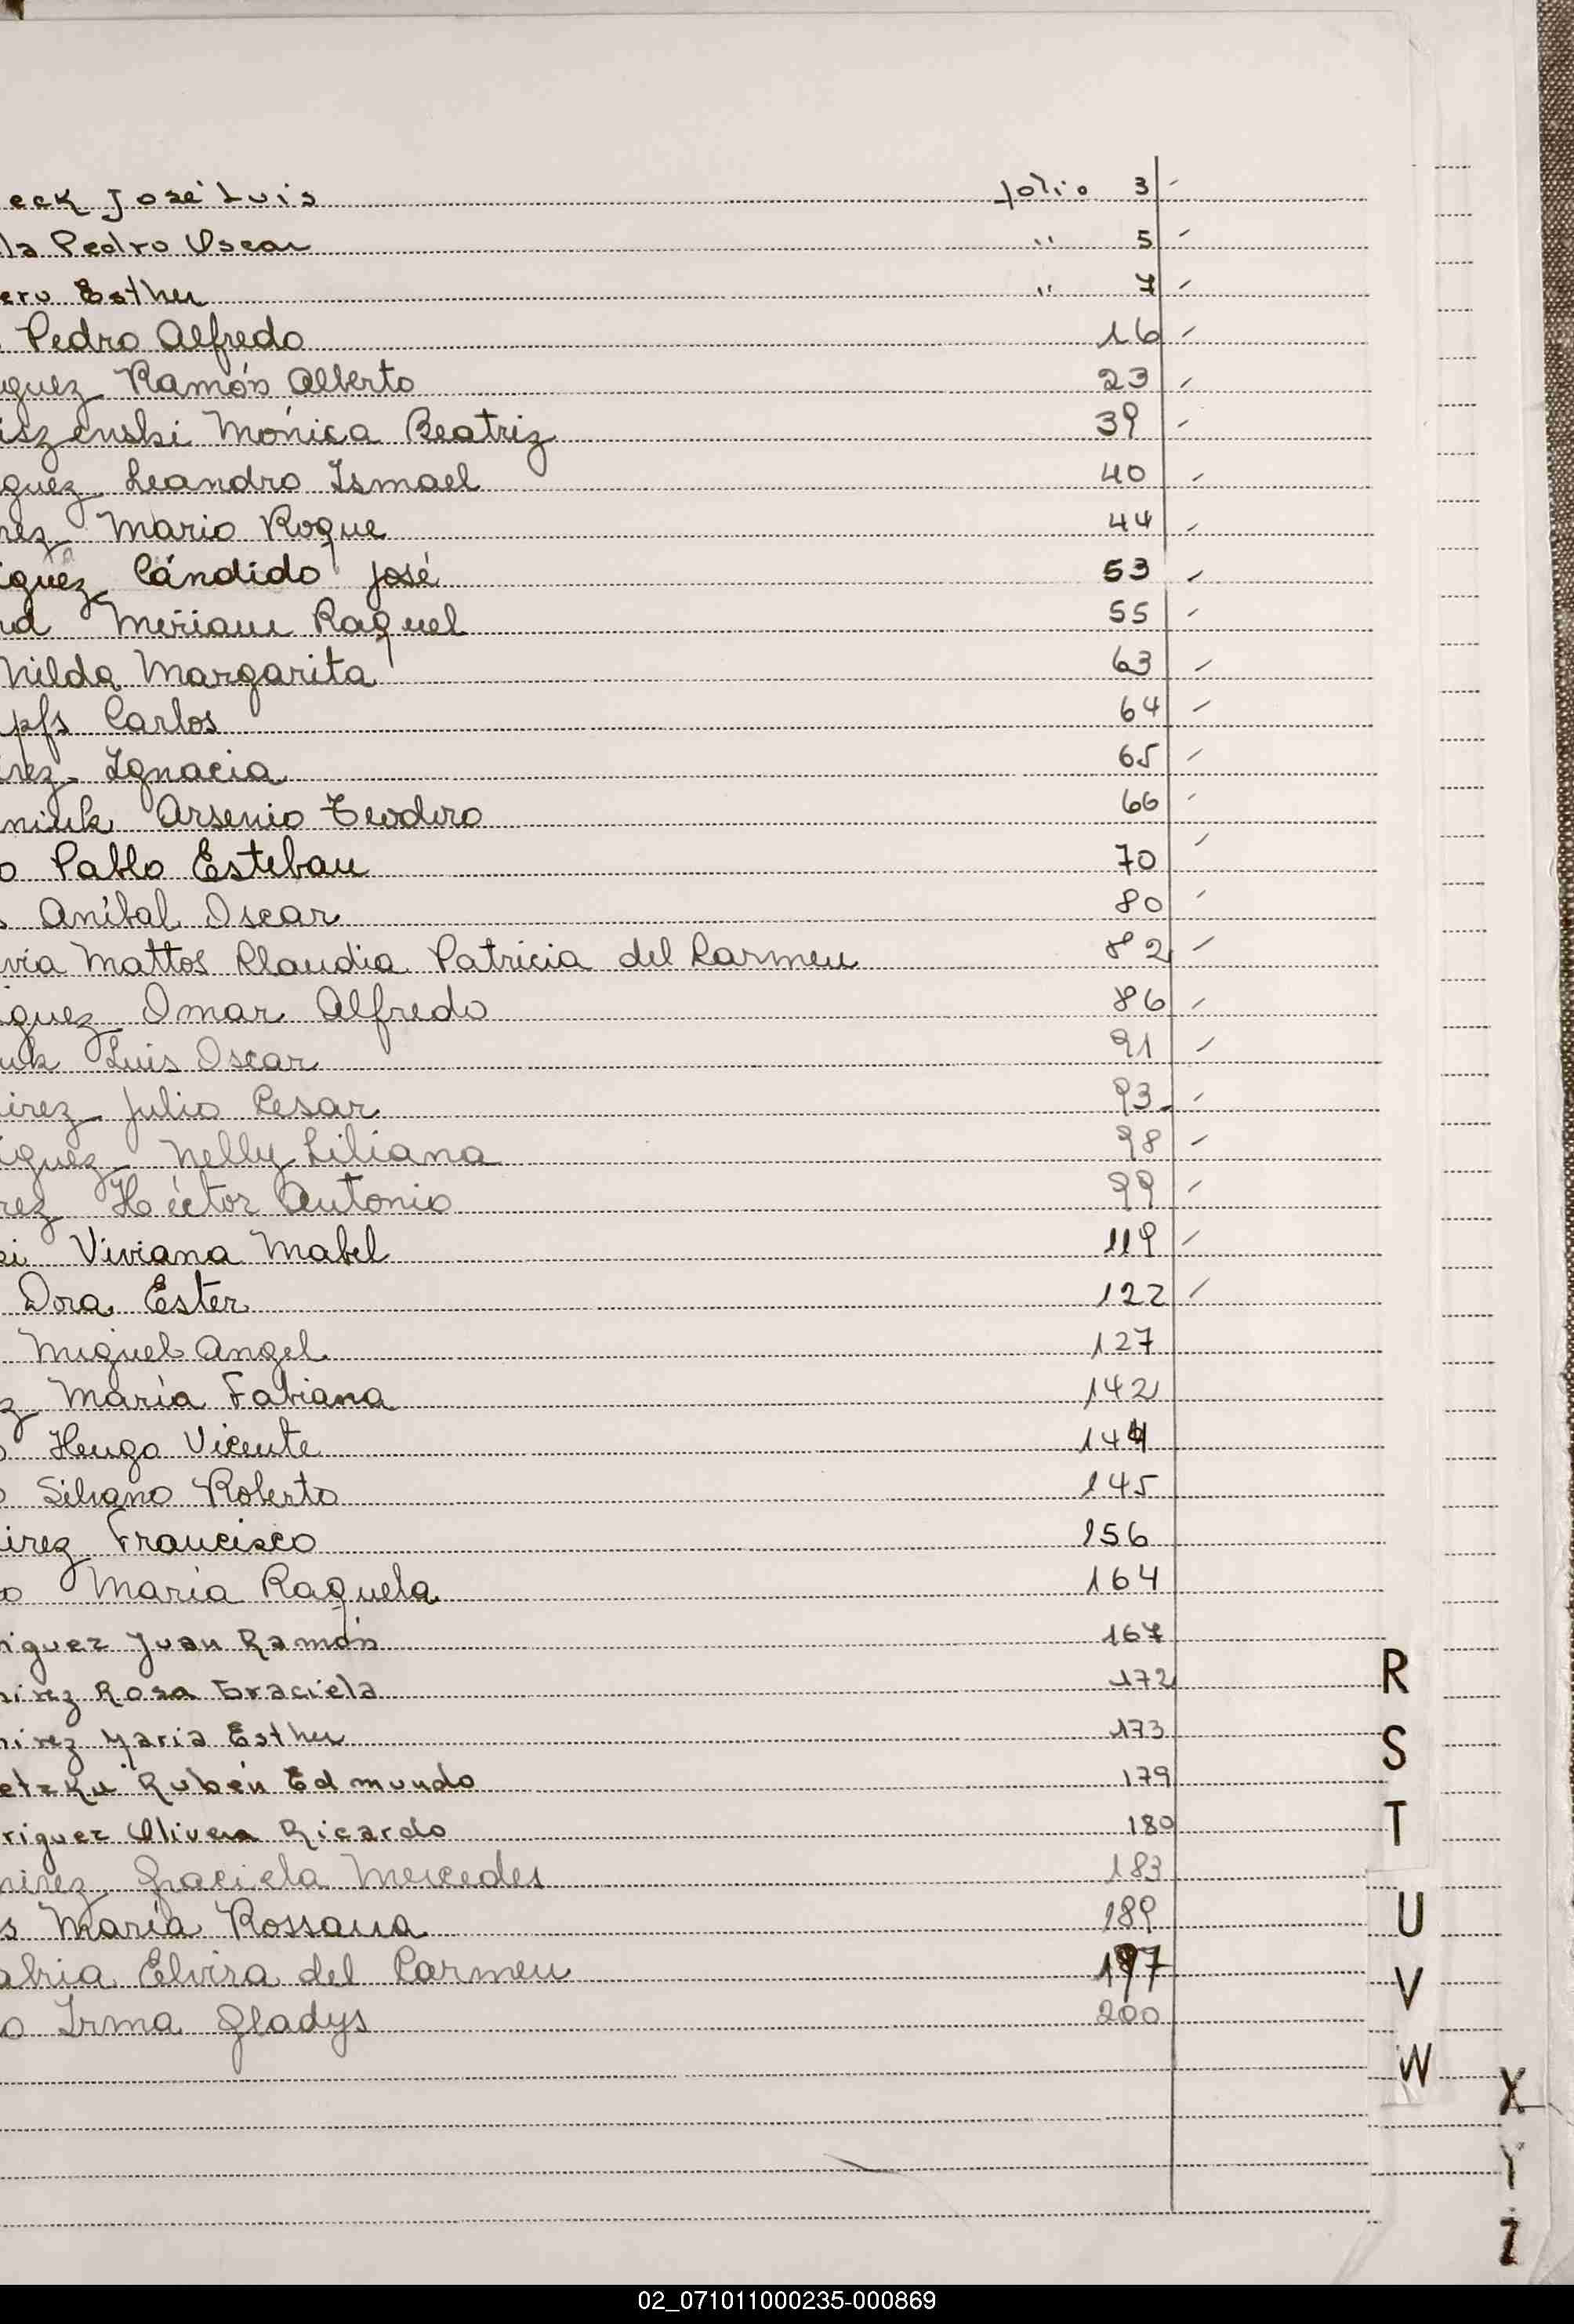 eck José Luis folio 3 -
la Pedro Oscar " 5 -
ero Esther " 7 -
Pedro Alfredo 16 -
guez Ramón Alberto 23 -
iszenski Mónica Beatriz 39 -
guez Leandro Ismael 40 -
rez Mario Roque 44 -
iguez Cándido José 53 -
rd Miriam Raquel 55 -
Nilda Margarita 63 -
pfs Carlos 64 -
irez Ignacia 65 -
niuk Arsenio Teodoro 66 -
o Pablo Esteban 70 -
s Aníbal Oscar 80 -
via Mattos Claudia Patricia del Carmen 82 -
iguez Omar Alfredo 86 -
uk Luis Oscar 91 -
irez Julio Cesar 93 -
iguez Nelly Liliana 98 -
rez Héctor Antonio 99 -
ei Viviana Mabel 119 -
Dora Ester 122 -
Miguel Angel 127
z María Fabiana 142
o Hugo Vicente 144
o Silvano Roberto 145
irez Francisco 156
o María Raquela 164
riguez Juan Ramón 167
mirez Rosa Graciela 172
mirez María Esther 173
etzku Rubén Edmundo 179
riguez Olivera Ricardo 180
mirez Graciela Mercedes 183
s María Rossana 189
abria Elvira del Carmen 197
o Irma Gladys 200
R
S
T
U
V
W
X
Y
Z
02_071011000235-000869